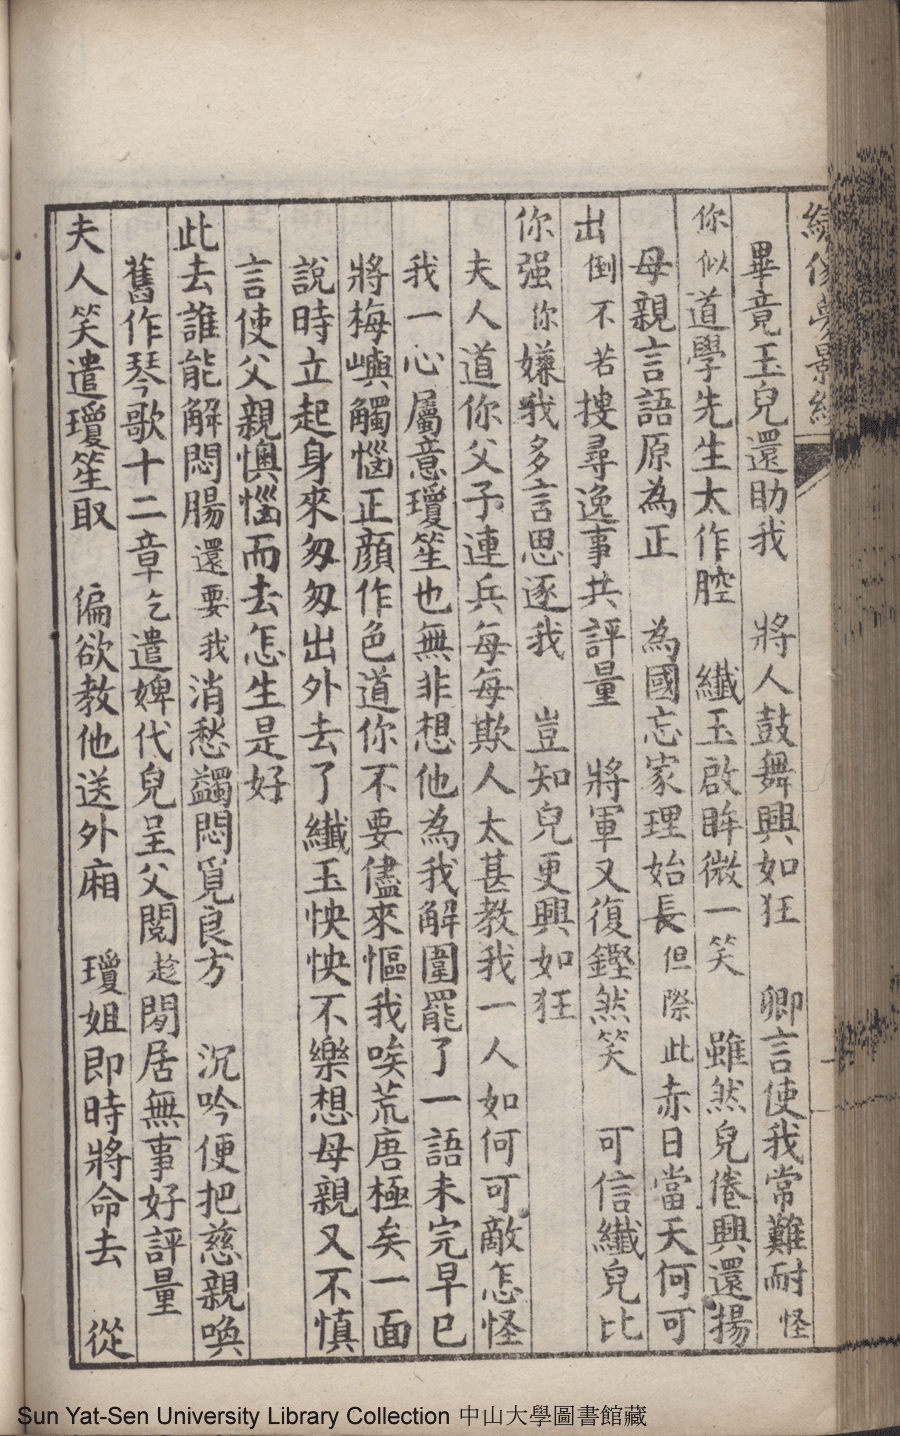 繡像夢影緣
畢竟玉兒還助我　將人鼓舞興如狂　卿言使我常難耐怪
你似道學先生太作腔　纖玉啟眸微一笑　雖然兒倦興還揚
母親言語原為正　為國忘家理始長但際此赤日當天何可
出倒不若搜尋逸事共評量　將軍又復鏗然笑　可信纖兒比
你强你嫌我多言思逐我　豈知兒更興如狂
夫人道你父子連兵每每欺人太甚教我一人如何可敵怎怪
我一心屬意瓊笙也無非想他為我解圍罷了一語未完早已
將梅嶼觸惱正顏作色道你不要儘來慪我唉荒唐極矣一面
說時立起身來匆匆出外去了纖玉怏怏不樂想母親又不慎
言使父親懊惱而去怎生是好
此去誰能解悶腸還要我消愁蠲悶覓良方　沉吟便把慈親喚
舊作琴歌十二章乞遣婢代兒呈父閱趁閒居無事好評量
夫人笑遣瓊笙取　偏欲教他送外廂　瓊姐即時將命去　從
Sun Yat-Sen University Library Collection 中山大學圖書館藏